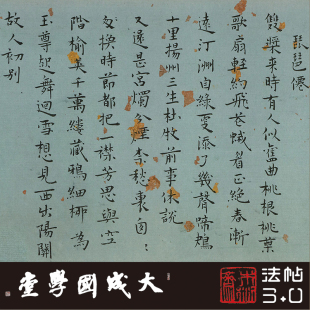 琵琶僊
雙槳來時有人似舊曲桃根桃葉
歌扇輕約飛花蛾眉正絕春漸
遠汀洲自綠更添了幾聲啼鴂
十里揚州三生杜牧前事休說
又還是宮燭分煙奈愁裏匆匆
換時節都把一襟芳思與空
階榆莢千萬縷藏鴉細柳為
玉尊起舞迴雪想見西出陽關
故人初別
大成國學堂
法帖
3.0